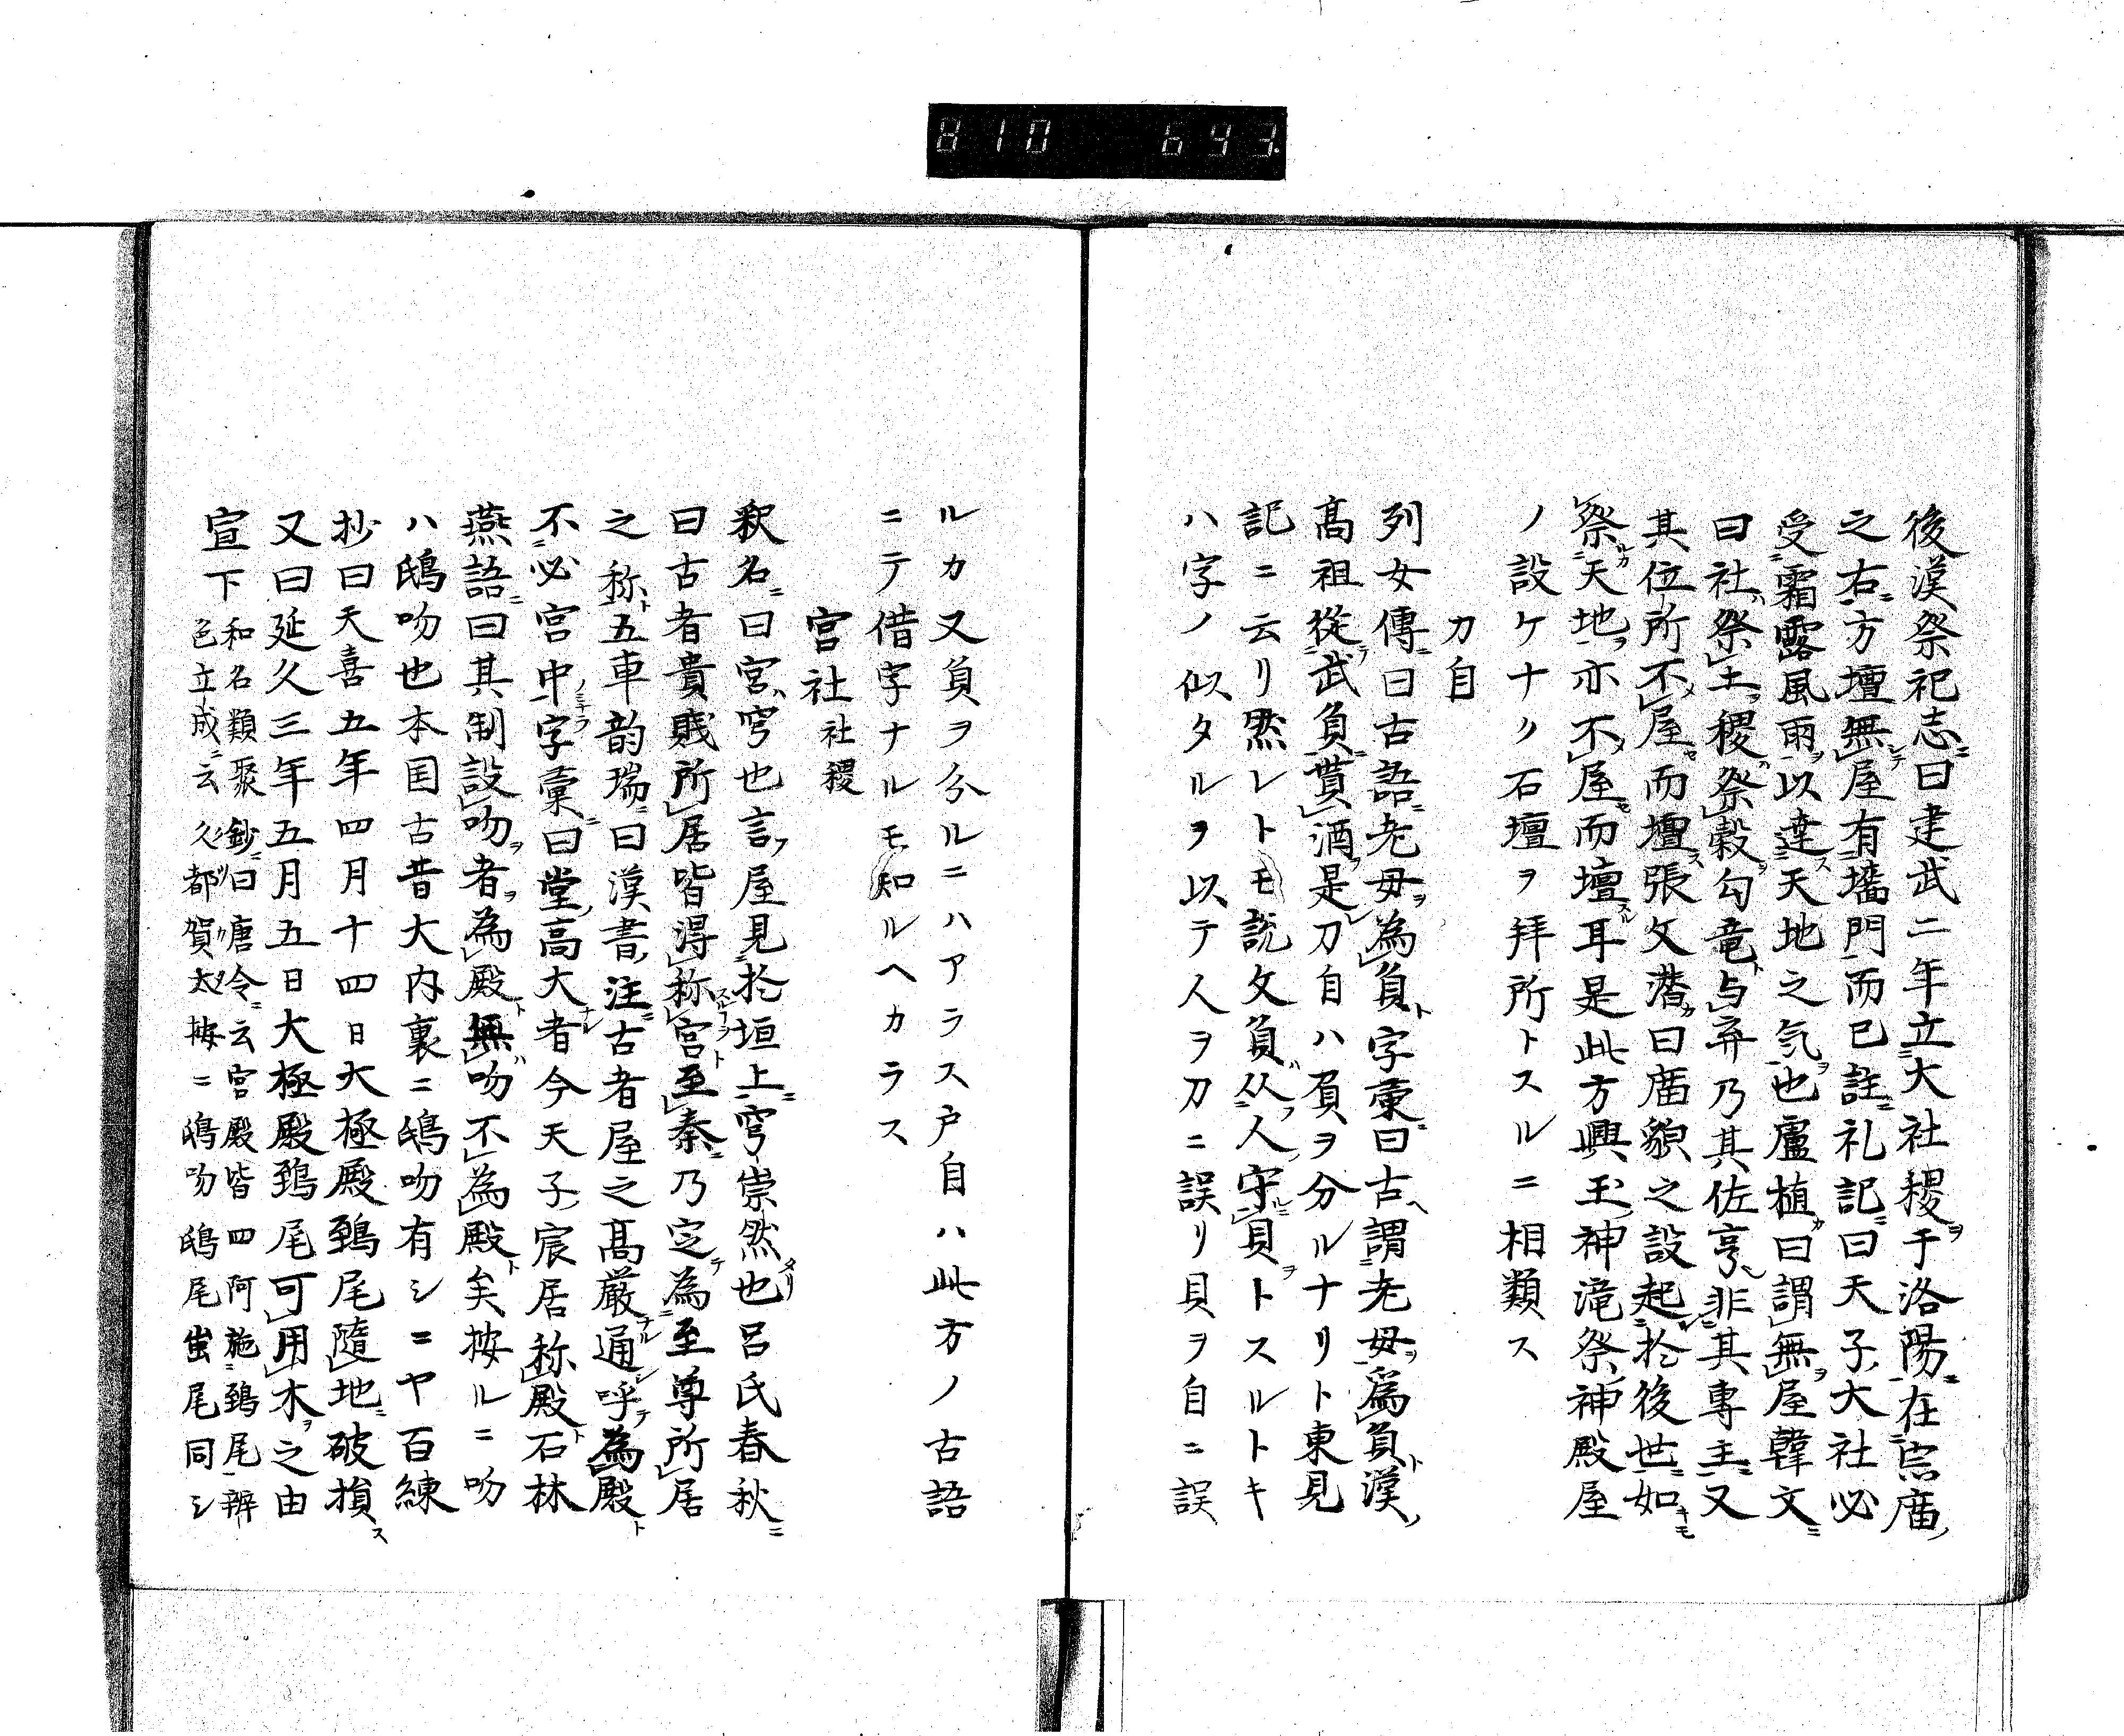 810 643.
後漢祭祀志曰建武二年立大社稷于洛陽在宗廟
之右方壇無屋有墻門而已註礼記曰天子大社必
受霜露風雨以達天地之気也盧植曰謂無屋韓文
曰社祭土稷祭穀勾竜与弃乃其佐享非其專主又
其位所不屋而壇張文潜曰廟貌之設起於後世如
祭天地亦不屋而壇耳是此方興玉神滝祭神殿屋
ノ設ケナク石壇ヲ拝所トスルニ相類ス
刀自
列女傳曰古語老母為負字彙曰古謂老母爲負漢
高祖從武負貰酒是刀自ハ負ヲ分ルナリト東見
記ニ云リ然レトモ説文負从人守貝トスルトキ
ハ字ノ似タルヲ以テ人ヲ刀ニ誤リ貝ヲ自ニ誤
ルカ又負ヲ分ルニハアラス戸自ハ此方ノ古語
ニテ借字ナルモ知ルヘカラス
宮社社稷
釈名曰宮穹也言屋見於垣上穹崇然也呂氏春秋
曰古者貴賎所居皆得称宮至秦乃定為至尊所居
之称五車韵瑞曰漢書注古者屋之髙厳通呼為殿
不必宮中字彙曰堂高大者今天子宸居称殿石林
燕語曰其制設吻者為殿無吻不為殿矣按ルニ吻
ハ鴟吻也本国古昔大内裏ニ鴟吻有シニヤ百練
抄曰天喜五年四月十四日大極殿鵄尾隨地破損
又曰延久三年五月五日大極殿鵄尾可用木之由
宣下和名類聚鈔曰唐令云宮殿皆四阿施鵄尾辨
色立成云久都賀太按ニ鴟吻鴟尾蚩尾同シ